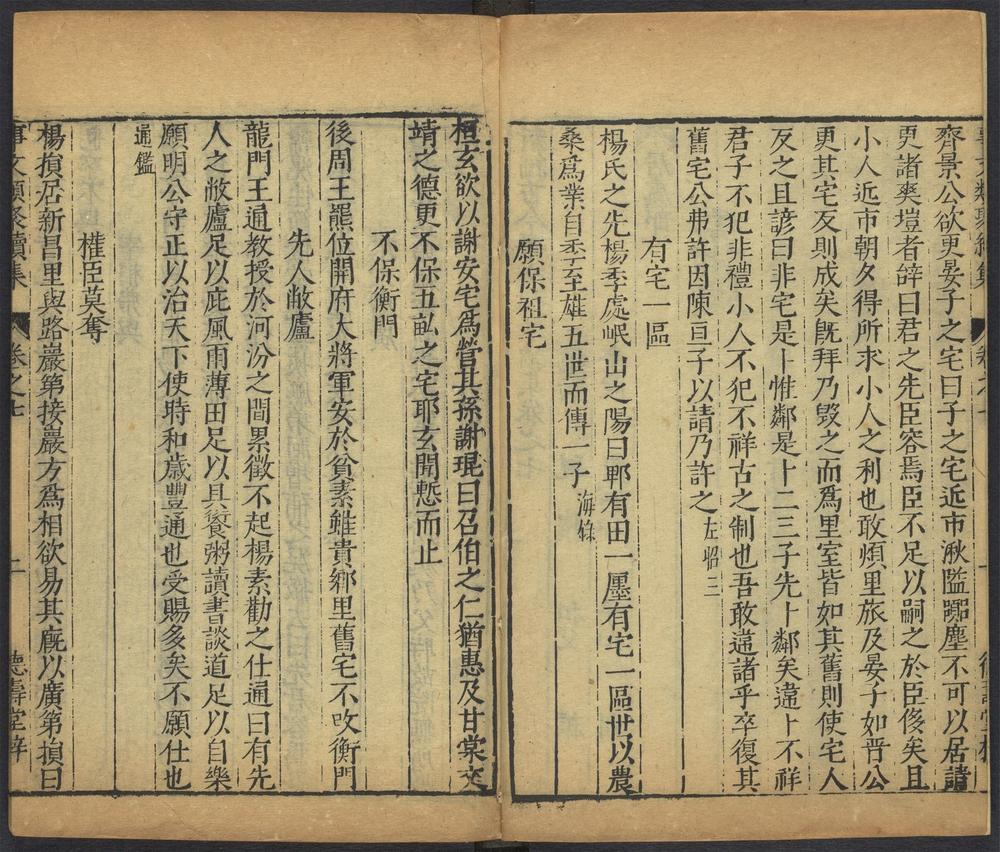 齊景公欲更晏子之宅曰子之宅近市湫隘踞塵不可以居請
更諸爽塏者辭曰君之先臣容焉臣不足以嗣之於臣侈矣且
小人近市朝夕得所求小人之利也敢煩里旅及晏子如晋公
更其宅反則成矣既拜乃毀之而爲里室皆如其舊則使宅人
反之且諺曰非宅是卜惟鄰是卜二三子先卜鄰矣違卜不祥
君子不犯非禮小人不犯不祥古之制也吾敢違諸乎卒復其
舊宅公弗許因陳亘子以請乃許之左昭三
有宅一區
楊氏之先楊季處岷山之陽曰郫有田一㕓有宅一區世以農
桑爲業自季至雄五世而傳一子海録
願保祖宅
桓玄欲以謝安宅爲營其孫謝琨曰召伯之仁猶惠及甘棠文
靖之德更不保五畝之宅耶玄聞慙而止
不保衡門
後周王羆位開府大將軍安於貧素雖貴鄉里舊宅不改衡門
先人敝廬
龍門王通教授於河汾之間累徵不起楊素勸之仕通曰有先
人之敝廬足以庇風雨薄田足以具餐粥讀書談道足以自樂
願明公守正以治天下使時和歲豐通也受賜多矣不願仕也
通鑑
權臣莫奪
楊損居新昌里與路巖第接巖方爲相欲易其廐以廣第損曰
事文類聚續集
卷之七
二
德壽堂梓